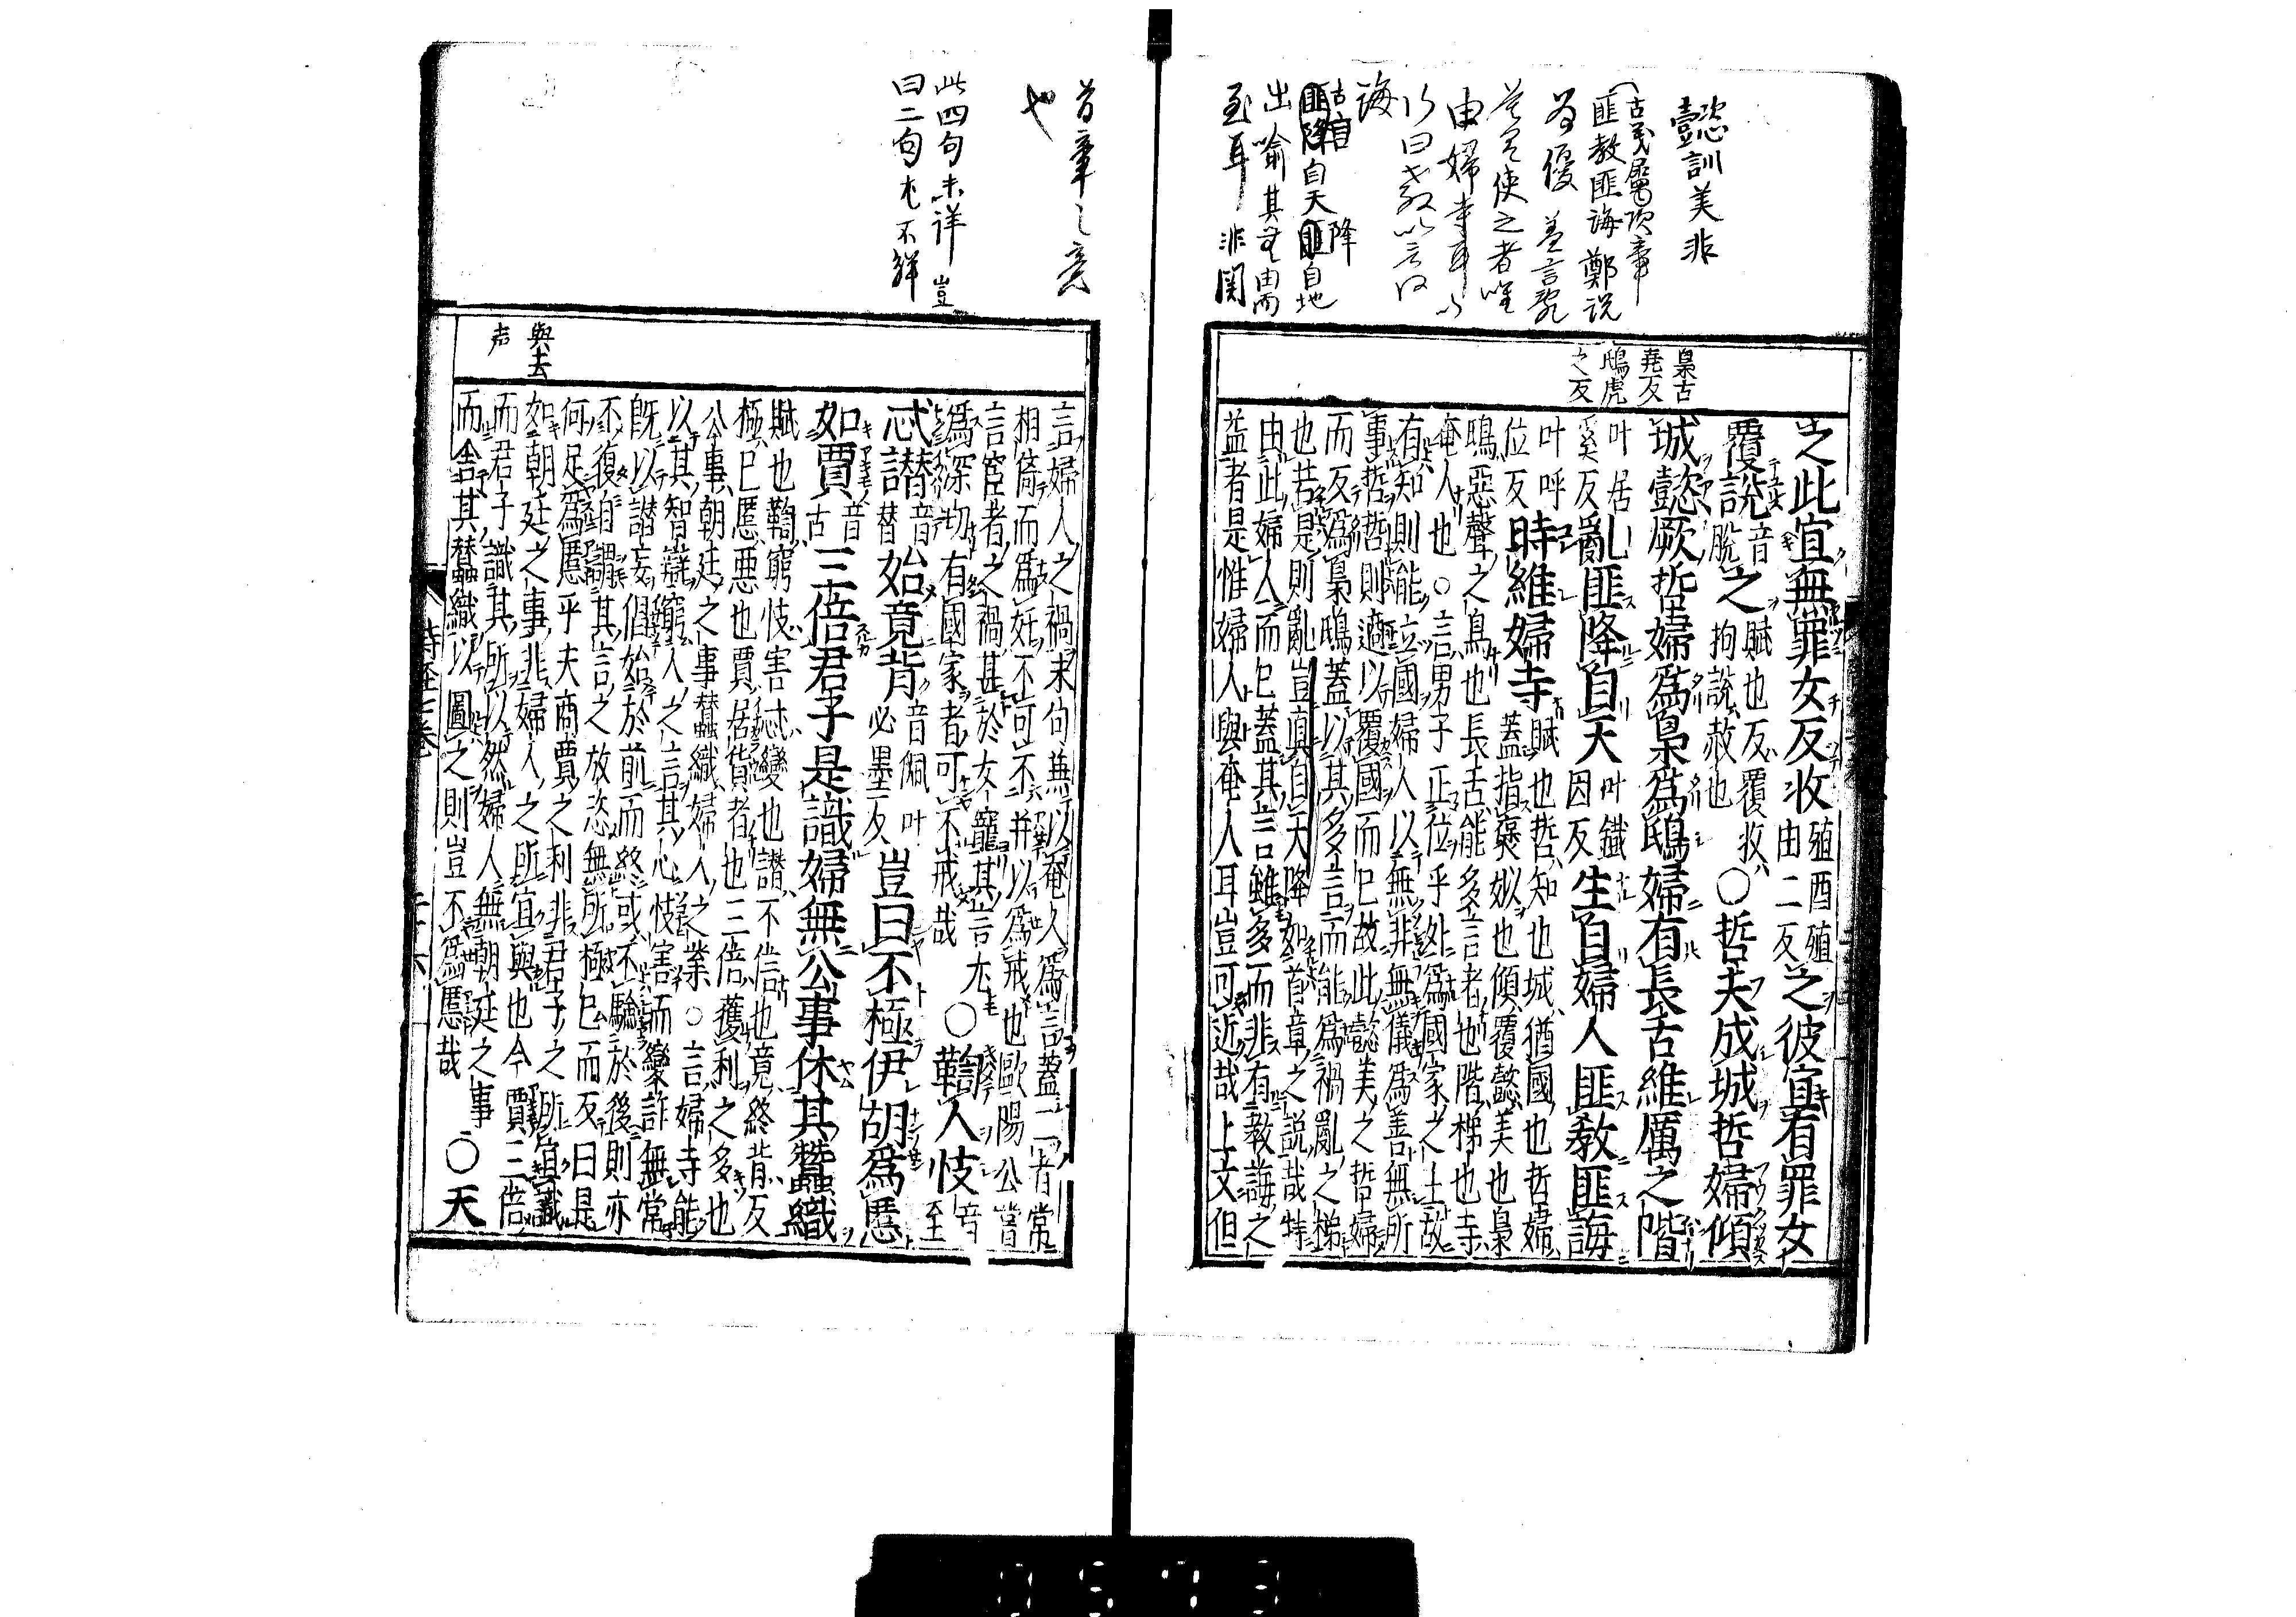 懿訓美非
古義屬次章
匪教匪誨鄭説
由婦寺耳
誨
自天降自地
出喩其
至耳非関
梟古
堯反
鴟虎
之反
之此宜無罪女反收殖酉殖由二反之彼宜有罪女
覆說音脫之賦也反覆收拘說赦也○哲夫成城哲婦傾
城懿厥哲婦爲梟爲鴟婦有長舌維厲之階
叶居奚反亂匪降自天叶鐵因反生自婦人匪敎匪誨
叶呼位反時維婦寺賦也哲知也城猶國也哲婦
蓋指襃姒也傾覆懿美也梟
鴟惡聲之鳥也長舌能多言者也階梯也寺
奄人也○言男子正位乎外爲國家之主故
有知則能立國婦人以無非無儀爲善無所
事哲哲則適以覆國而已故此懿美之哲婦
而反爲梟鴟蓋以其多言而能爲禍亂之梯
也若是則亂豈眞自天降如首章之說哉特
由此婦人而已蓋其言雖多而非有敎誨之
益者是惟婦人與奄人耳豈可近哉上文但
首章之意
也
此四句未詳豈
曰二句尤不詳
與去
声
言婦人之禍末句兼以奄人爲言蓋二者常
相倚而爲奸不可不并以爲戒也歐陽公嘗
言宦者之禍甚於女寵其言尤
爲深切有國家者可不戒哉○鞫人忮音至
忒譖音替始竟背音佩叶必墨反豈曰不極伊胡爲慝
如賈音古三倍君子是識婦無公事休其蠶織
賦也鞫窮忮害忒變也譖不信也竟終背反
極已慝惡也賈居貨者也三倍獲利之多也
公事朝廷之事蠶織婦人之業○言婦寺能
以其智辯窮人之言其心忮害而變詐無常
旣以譖妄倡始於前而終或不驗於後則亦
不復自謂其言之放恣無所極已而反曰是
何足爲慝乎夫商賈之利非君子之所宜識
如朝廷之事非婦人之所宜與也今賈三倍
而君子識其所以然婦人無朝廷之事
而舍其蠶織以圖之則豈不爲慝哉○天
詩經七卷